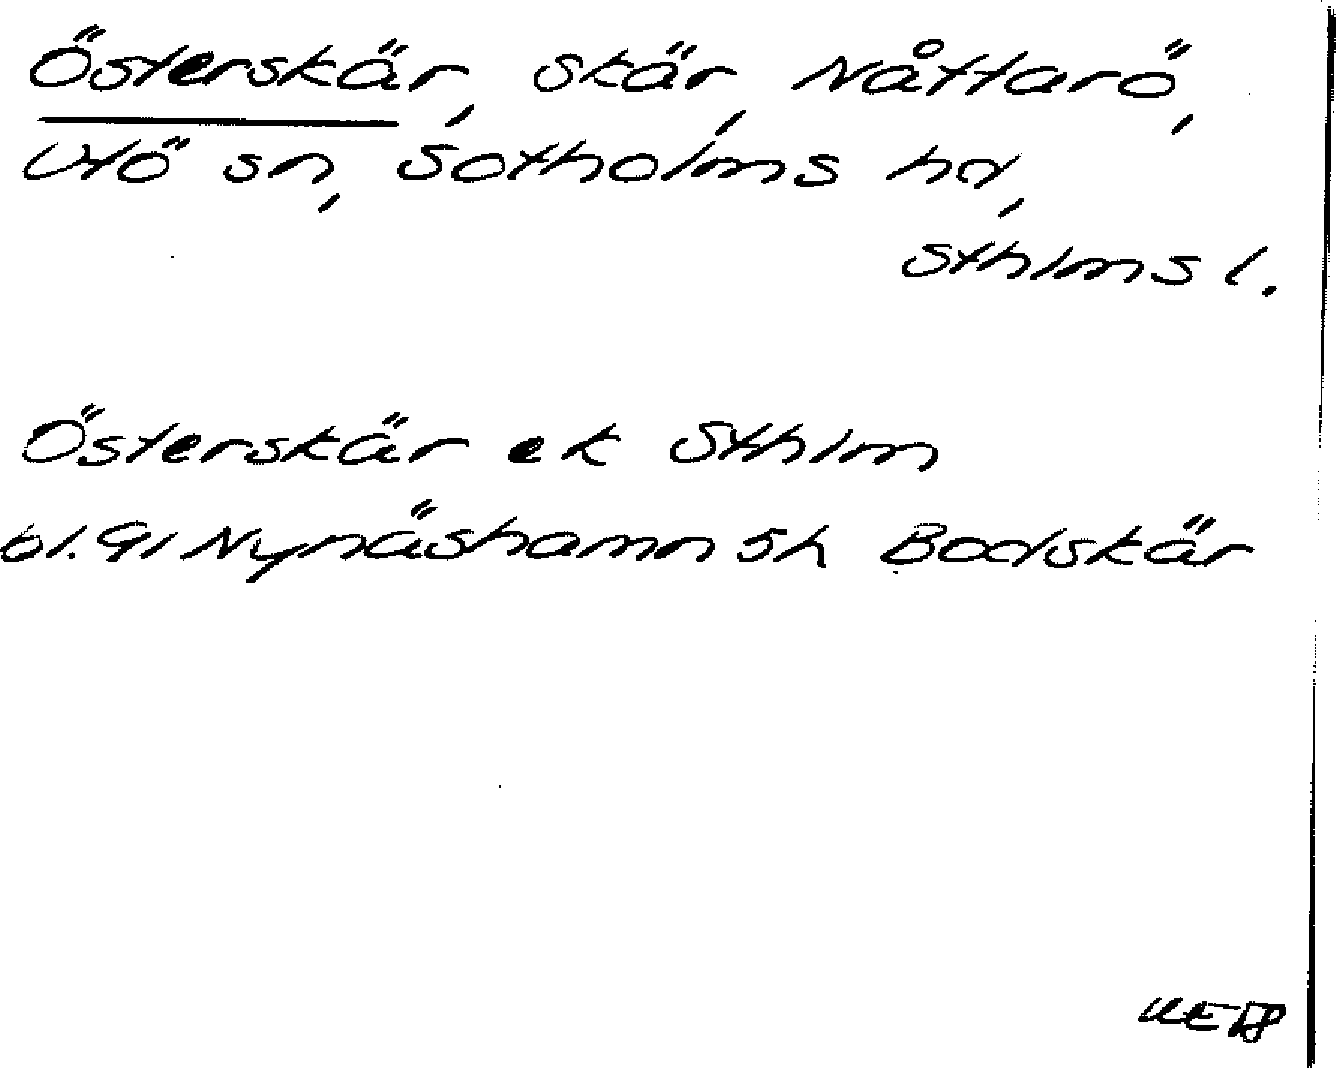 Österskär, skär, Nåttarö,
Utö sn, Sotholms hd,
Sthlms l.
Österskär ek Sthlm
bl. 91 Nynäshamn 5h Bodskär